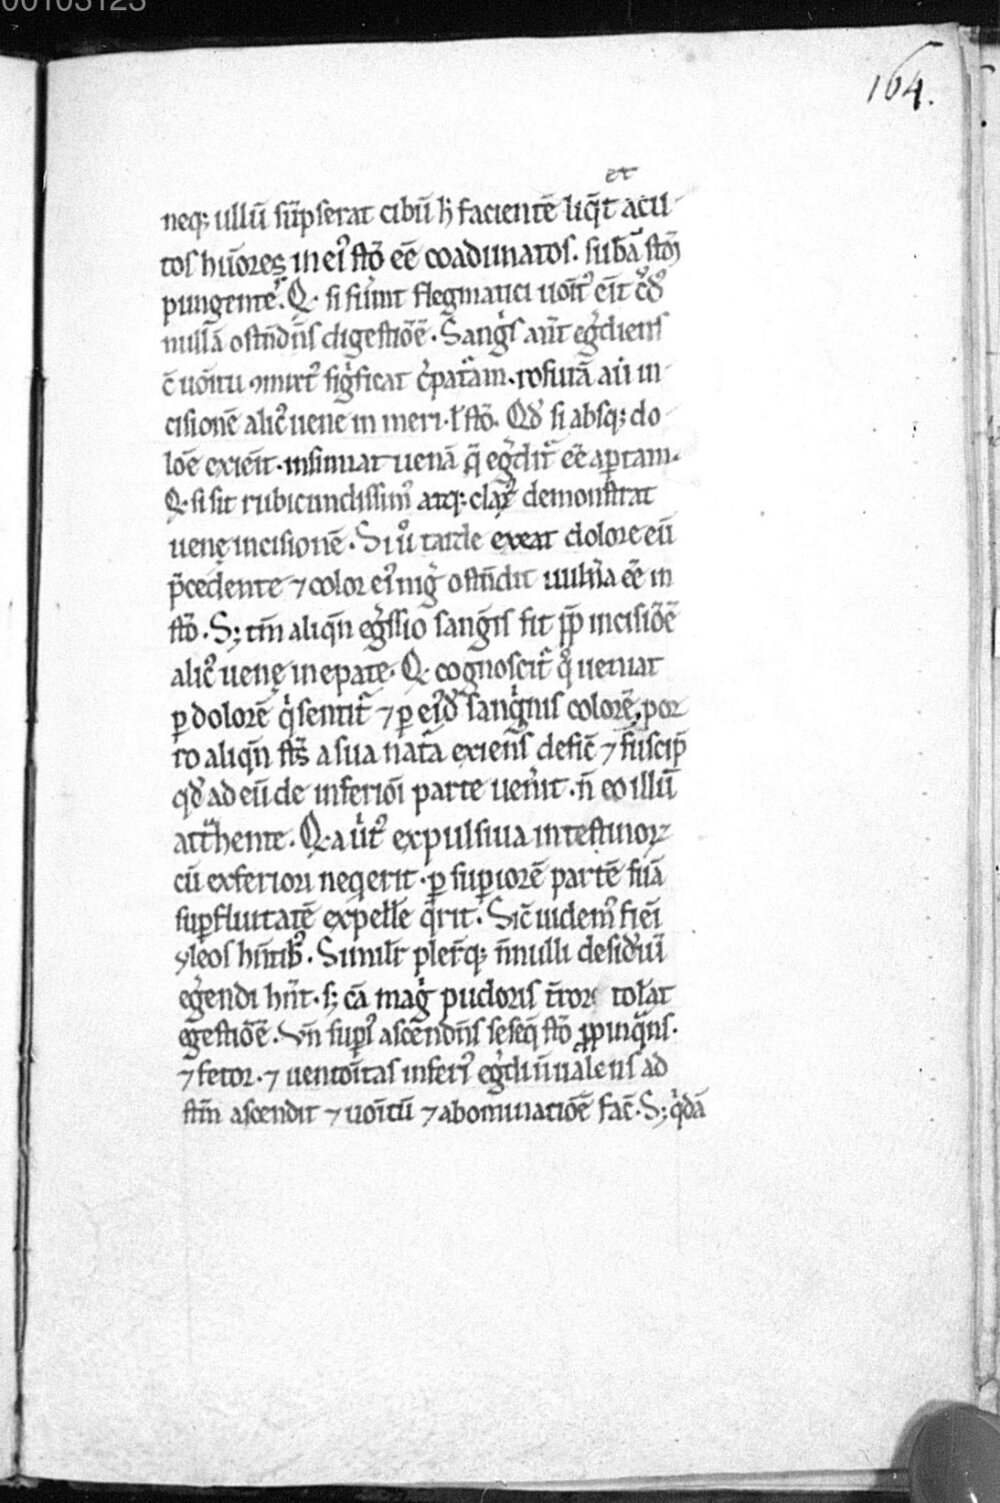 00103123
164.
et
neq; ullū sūpserat cibū h̄ facientē liq̄t acu
tos hūores in ei᾽ stō eē coadunatos. sub̄ā stōi
pungente᾽. Q. si fiūnt flegmatici uoīt᾽ eīt
nullā ostn̄dn̄s digestiōē. Sangͥs aūt egͣdiens
c̄ uōitu sigͥficat c̄patͣam. rosurā aū in
cisionē alic᾽ uene in meri. l᾽ stō. Qd̄ si absq; do
lōe exieīt. insinuat uenā q̄ egͣdit᾽ eē aꝑtam.
Q. si sit rubicundissim᾽ atq; claꝝ᾽ demonstrat
uenę incisionē. Si uͦ tarde exeat dolore eū
p̄cedente ⁊ color ei᾽ nigͣ ostn̄dit uulnͣa eē in
stō. S; tm̄ aliqn̄ egͣssio sangͥis fit ꝓp incisiōē
alic᾽ uenę in epate. Q. cognoscit᾽ qͦ ueniat
ꝑ dolorē qͥ sentit᾽ ⁊ ꝑ ei᾽d᾽ sanqͥnis colorē. por
ro aliqn̄ st̄s a sua nat̄a exiens̄ defic̄ ⁊ n̄ suscip̄
qd̄ ad eū de inferiōi parte uen̄it. n̄ eo illū
att̄hente. Q. a ūt᾽ expulsiua intestinoꝝ
cū exferiori neqerit. ꝑ suꝑiorē partē suā
suꝑfluitatē expelle᾽ q̄rit. Sic̄ uidem᾽ fiēi
yleos hn̄tib᾽. Similit᾽ pler̄q; n̄nulli desid᾽iū
egͣendi hn̄t. s; cā magͥ pudoris t̄ror tol᾽at
egͣestiōē. Vn̄ suꝑi᾽ ascēndn̄s seseq̄ stō ꝓpinqͣns.
⁊ fetor. ⁊ uentoīitas inferi᾽ egͣdi n̄ ualens ad
stm̄ ascendit ⁊ uoītū ⁊ abominatiōē fac̄. S; qͥdā